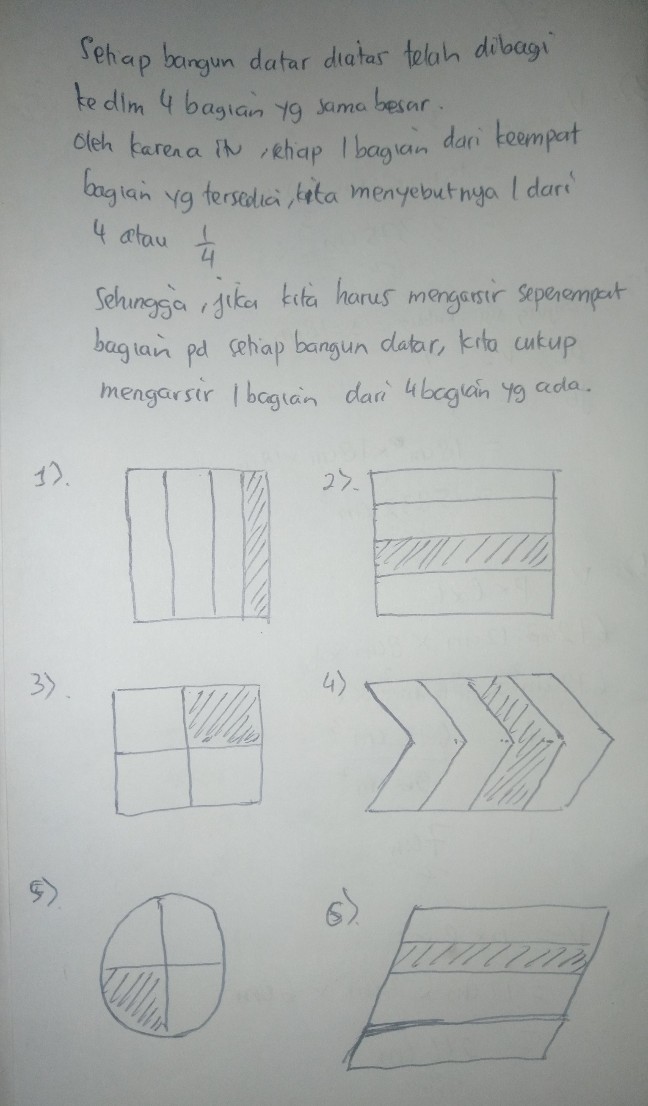 Setiap bangun datar diatas telah dibagi
ke dlm 4 bagian yg sama besar.
Oleh karena itu, setiap 1 bagian dari keempat
bagian yg tersedia, kita menyebutnya 1 dari
4 atau 1/4
Sehingga, jika kita harus mengarsir seperempat
bagian pd setiap bangun datar, kita cukup
mengarsir 1 bagian dari 4 bagian yg ada.
1). 2).
3). 4)
5) 6)